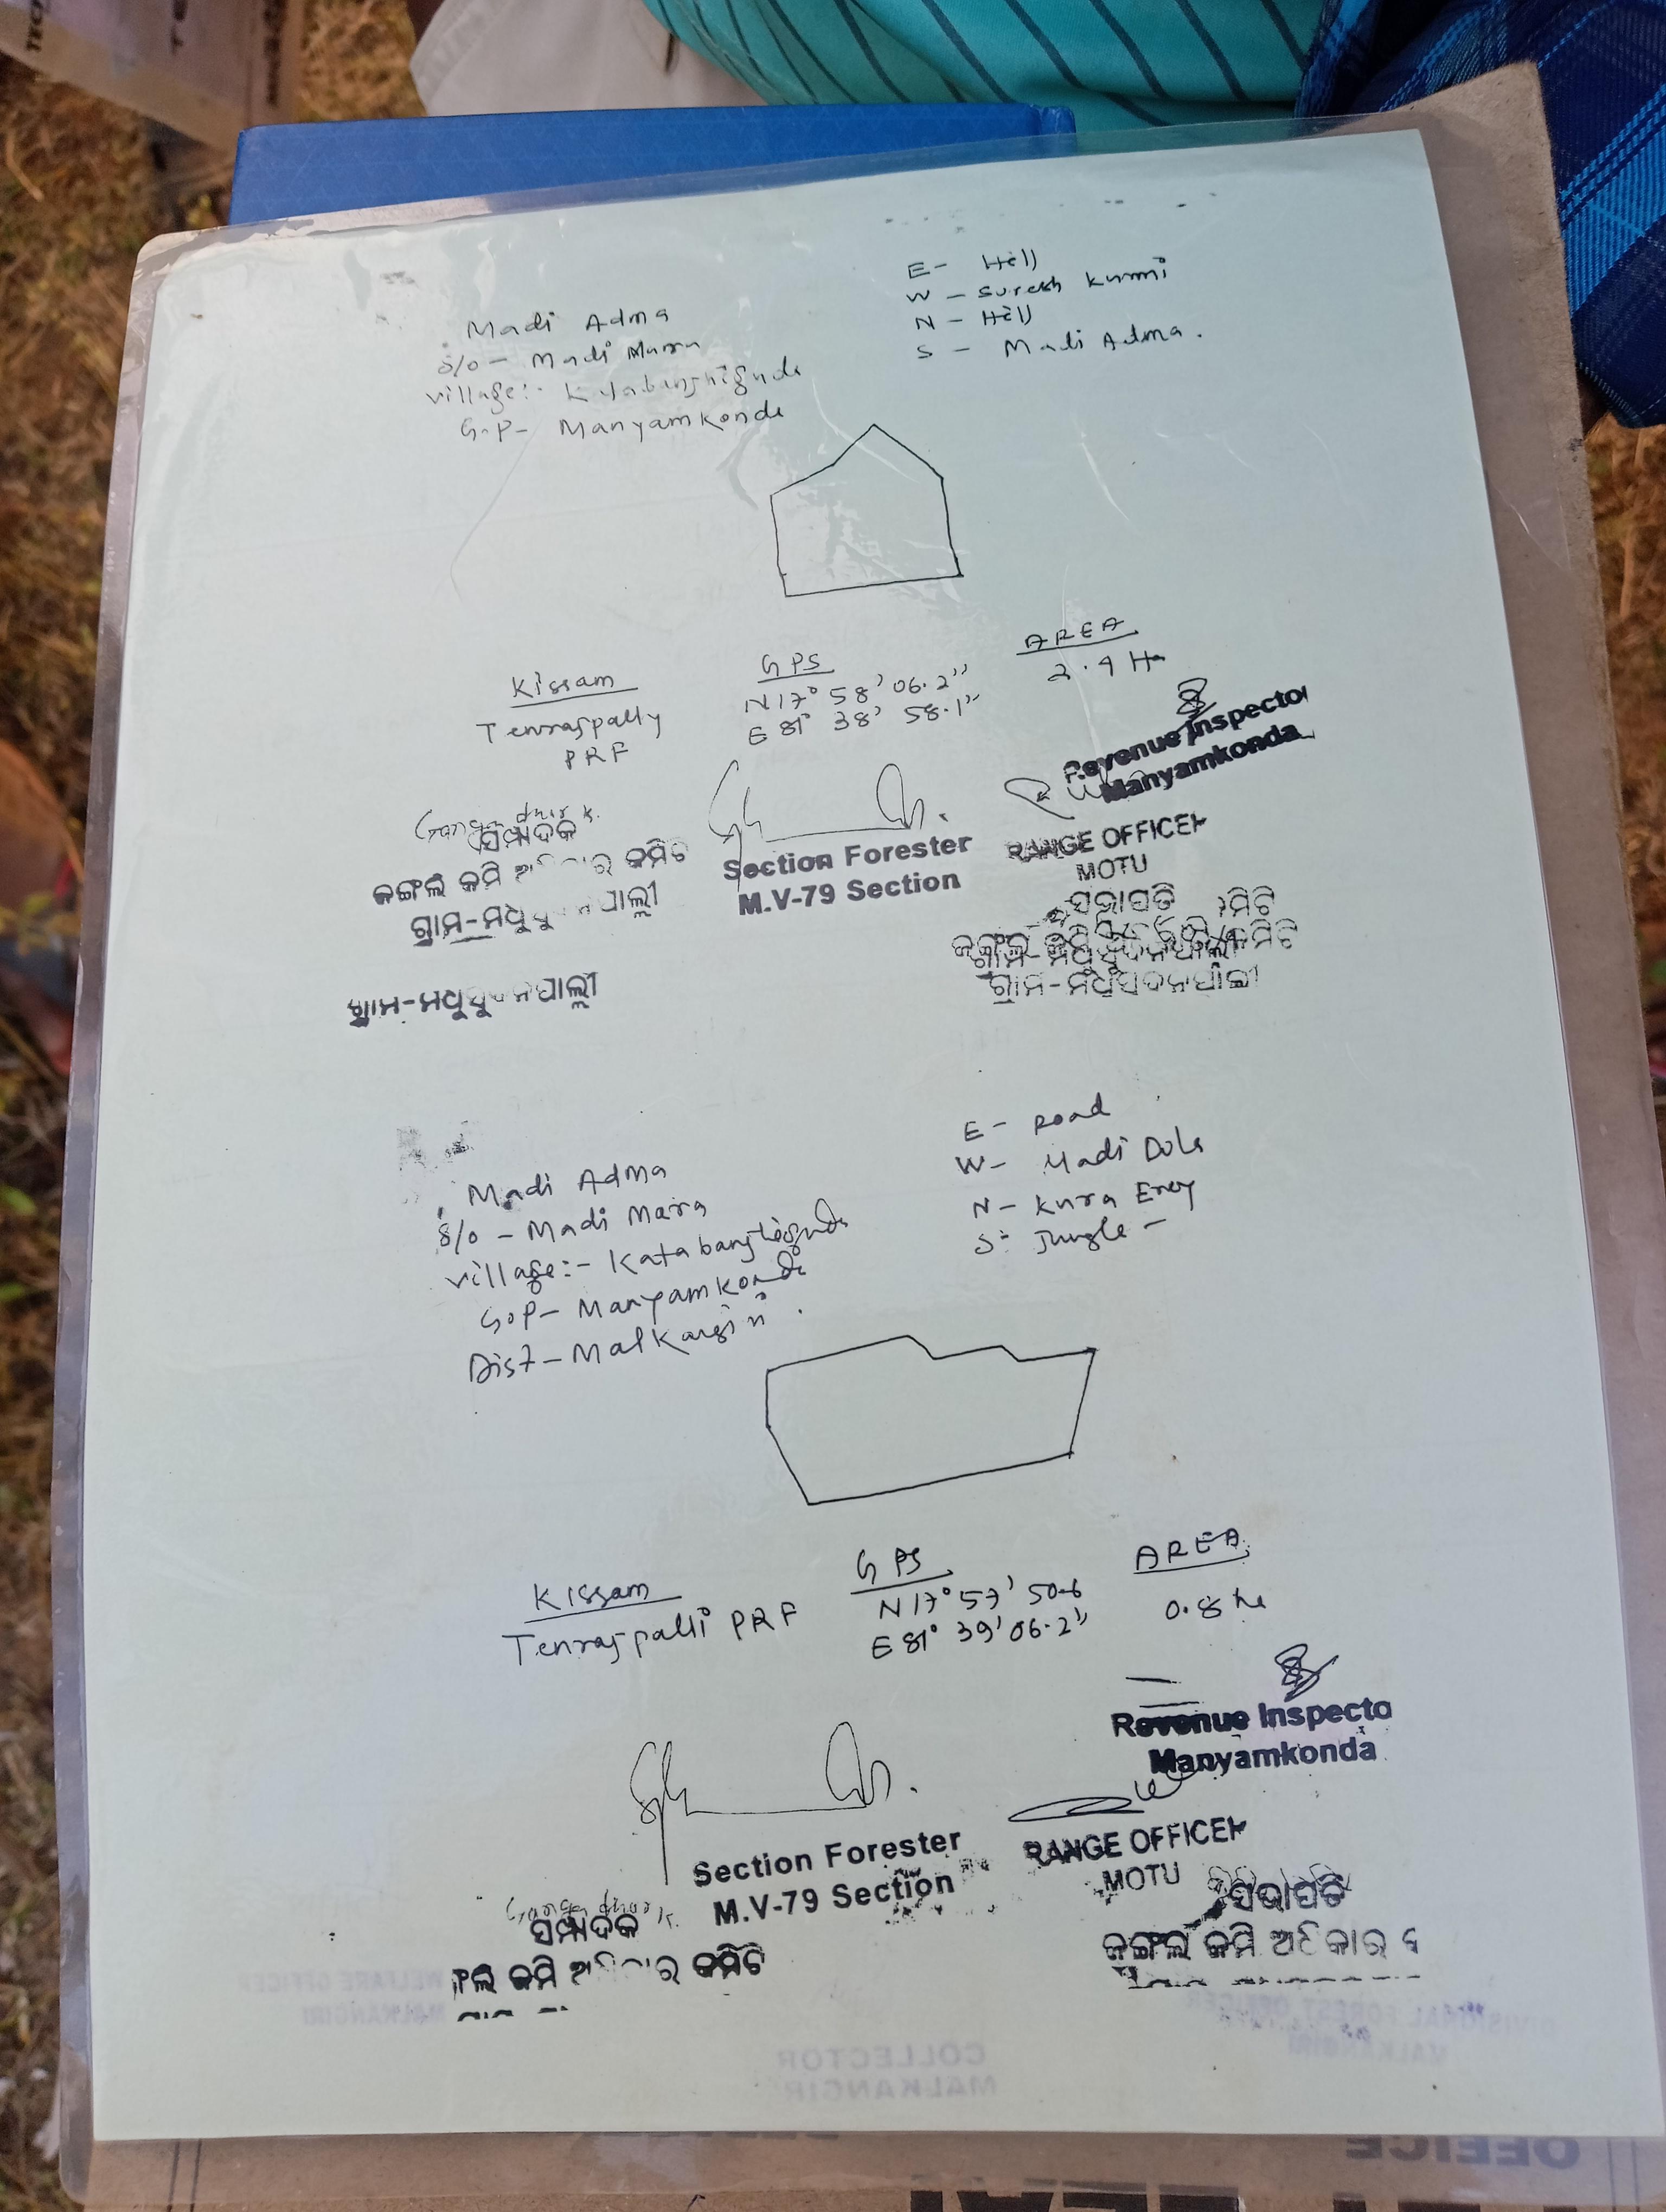 Madi Adma
S/o - Madi Mara
village:- Katabanshiguda
G.P- Manyamkonda
E- Hill
W - Suresh Kurmi
N - Hill
S - Madi Adma.
Kissam
Tenraspally
PRF
GPS
N 17° 58' 06.2"
E 81° 38' 58.1"
AREA
Ha
Revenue Inspector
Manyamkonda
Gangadhar k.
ସମ୍ପାଦକ
ଜଙ୍ଗଲ ଜମି ଅଧିକାର କମିଟି
ଗ୍ରାମ-ମଧୁସୂଦନପାଲ୍ଲୀ
ଗ୍ରାମ-ମଧୁସୂଦନପାଲ୍ଲୀ
Section Forester
M.V-79 Section
RANGE OFFICER
MOTU
ସଭାପତି
ଗ୍ରାମ-ମଧୁସୂଦନପାଲ୍ଲୀ
Madi Adma
S/o - Madi Mara
village:-
G.P- Manyamkonda
Dist- Malkangiri
E- Road
W- Madi Dula
N- Kura
S- Jungle -
Kissam
Tenraspalli PRF
GPS
N 17° 57' 50.6
E 81° 39' 06.2"
AREA
0.8 ha
Revenue Inspecto
Manyamkonda
Section Forester
M.V-79 Section
RANGE OFFICER
MOTU
Gangadhar k.
ସମ୍ପାଦକ
ଜମି ଅଧିକାର କମିଟି
ସଭାପତି
ଜଙ୍ଗଲ ଜମି ଅଧିକାର
WELFARE OFFICER
MALKANGIRI
COLLECTOR
MALKANGIRI
DIVISIONAL FOREST OFFICER
MALKANGIRI
OFFICE